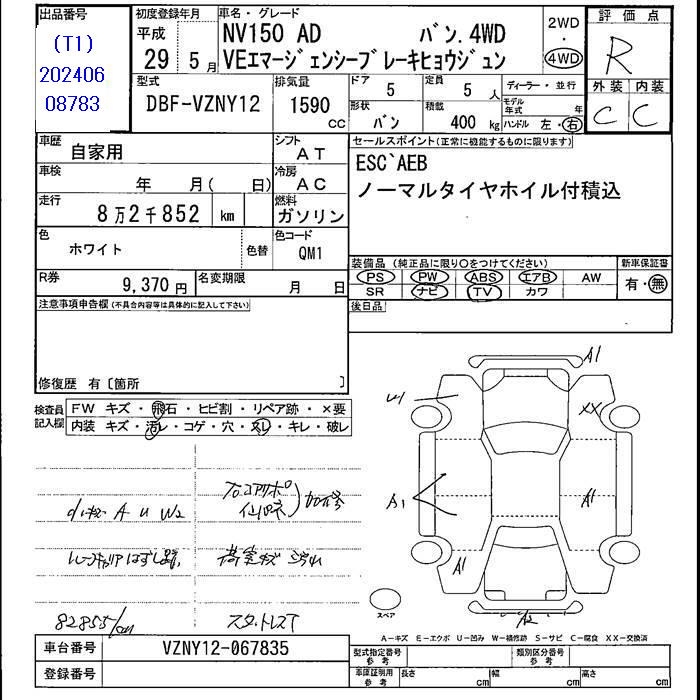 出品番号
(T1)
202406
08783
初度登録年月
平成
29 5 月
車名・グレード
NV150 AD バン.4WD
VEエマージェンシーブレーキヒョウジュン
2WD
・
4WD
評価点
R
外装 内装
C C
型式
DBF-VZNY12
排気量
1590
CC
ドア
5
定員
5 人
形状
バン
積載
400 kg
ディーラー・並行
モデル
年式 年
ハンドル 左・右
車歴
自家用
シフト
AT
車検
年 月( 日)
冷房
AC
走行
8万2千852 km
燃料
ガソリン
色
ホワイト
色替
色コード
QM1
R券
9,370 円
名変期限
月 日
セールスポイント(正常に機能するものに限ります)
ESC`AEB
ノーマルタイヤホイル付積込
装備品(純正品に限り○をつけてください)
PS PW ABS エアB AW
SR ナビ TV カワ
新車保証書
有・無
後日品
注意事項申告欄(不具合内容等は具体的に記入して下さい)
修復歴 有〔箇所 〕
検査員
記入欄
FW キズ・飛石・ヒビ割・リペア跡・×要
内装 キズ・汚レ・コゲ・穴・スレ・キレ・破レ
A U W2
荷室キズ
82855km
スタットレスT
A1
U1
XX
A1
A1
A1
スペア
A-キズ E-エクボ U-凹み W-補修跡 S-サビ C-腐食 XX-交換済
車台番号
VZNY12-067835
登録番号
型式指定番号
参考
類別区分番号
参考
車庫証明用
参考
長さ cm
幅 cm
高さ cm